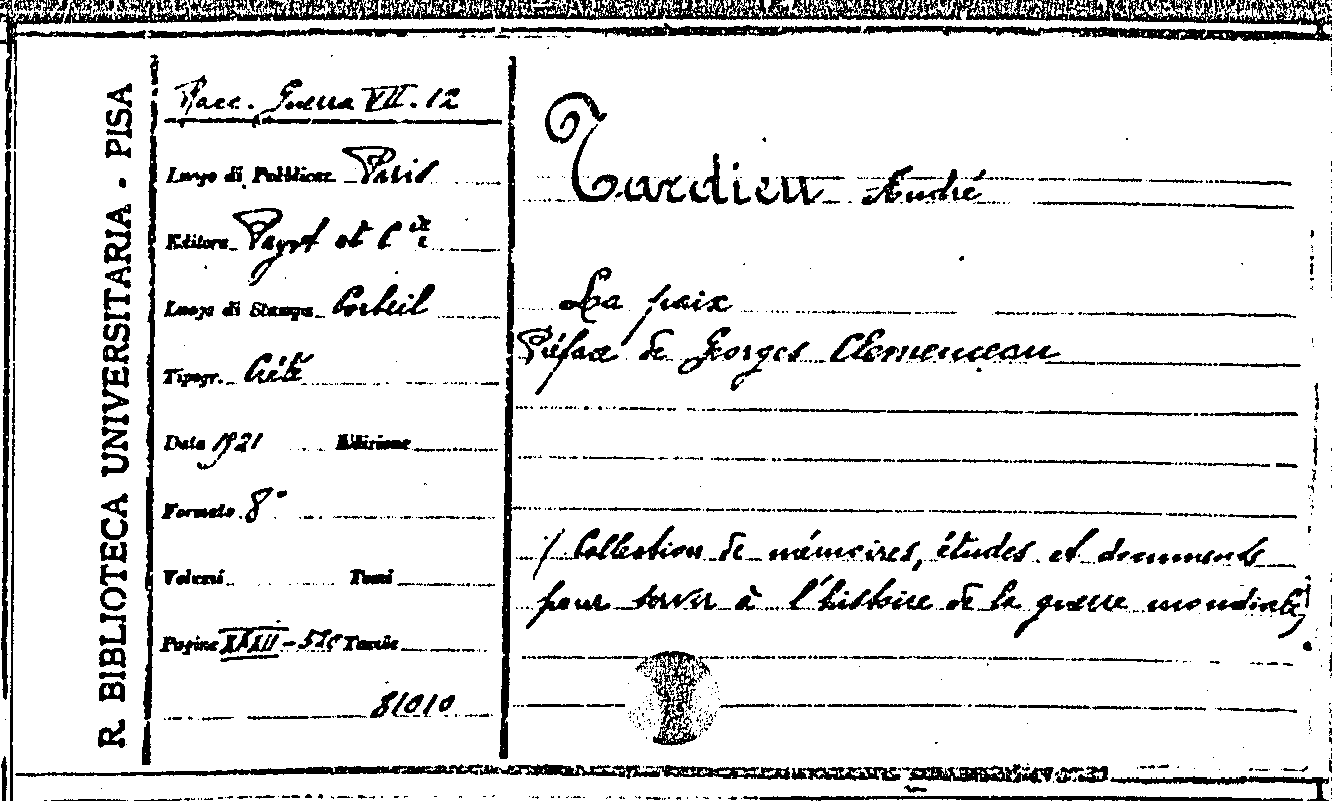 R. BIBLIOTECA UNIVERSITARIA - PISA
Racc. Guerra VII. 12
Luogo di Pubblicaz. Paris
Editore Payot et Cie
Luogo di Stampa Corbeil
Tipogr. Crété
Data 1921 Edizione
Formato 8°
Volumi Tomi
Pagine XXXII - Tavole
81010
Tardieu André
La paix
Préface de Georges Clemenceau
(Collection de mémoires, études et documents
pour servir à l'histoire de la guerre mondiale)